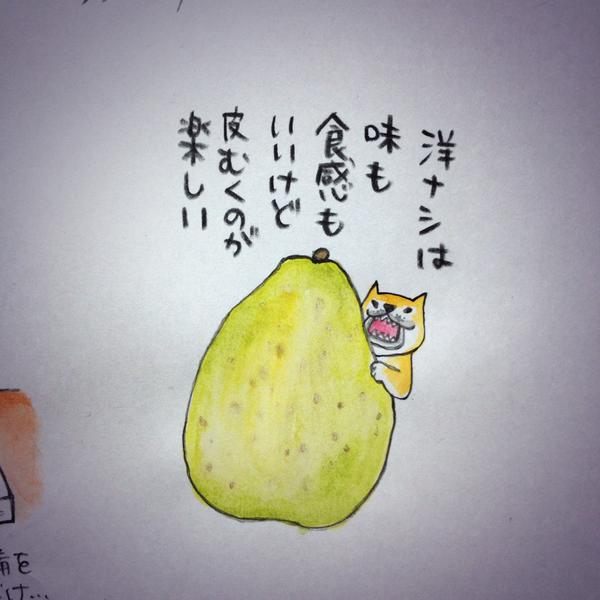 洋ナシは
味も
食感も
いいけど
皮むくのが
楽しい